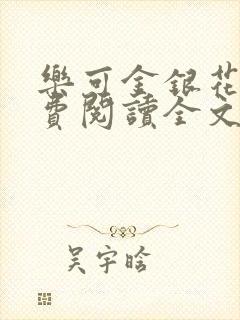 樂可金銀花
費閱讀全文
吴宇晗